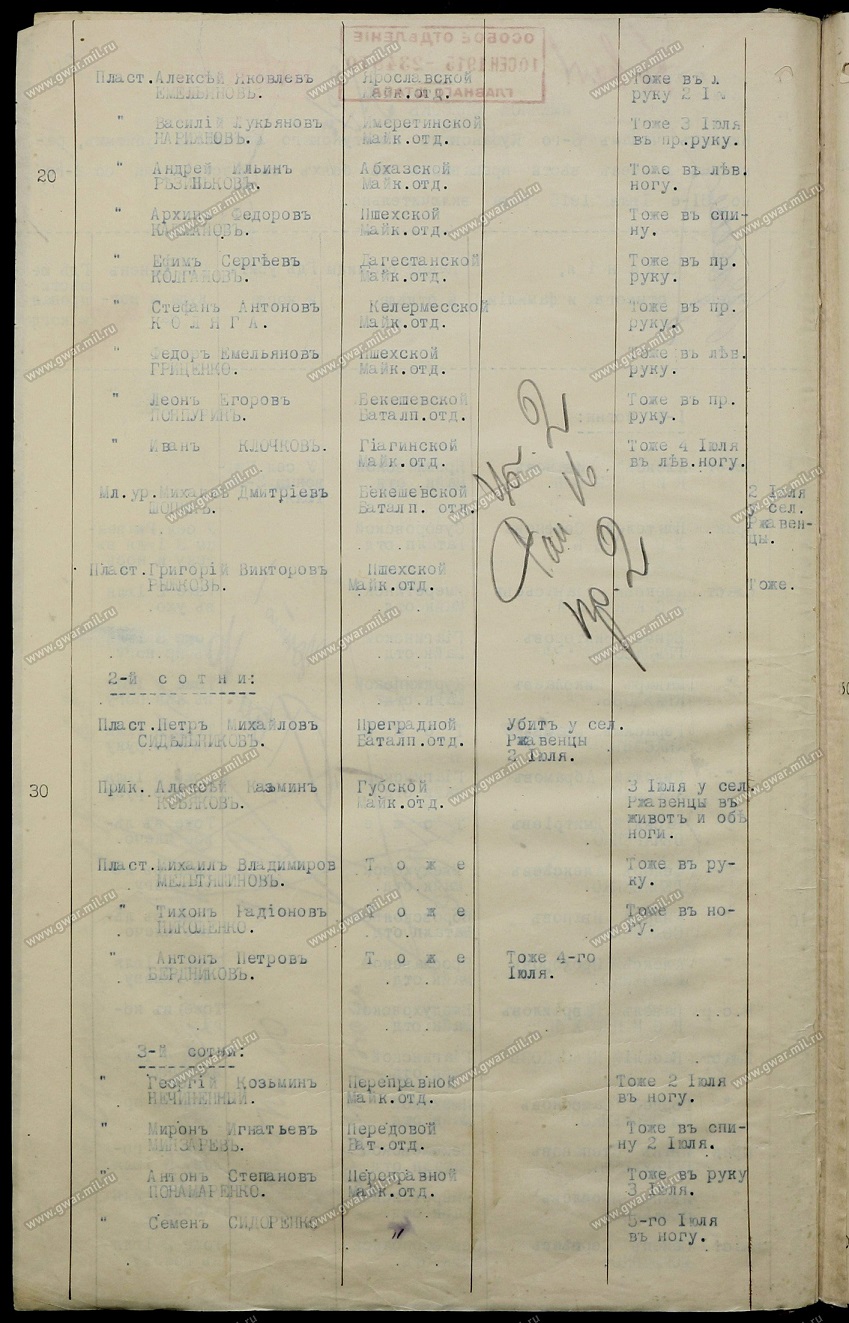 Пласт. Алексѣй Яковлевъ Ярославской Тоже въ л
ЕМЕЛЬЯНОВЪ. Майк.отд. руку 2 І
" Василій Лукьяновъ Имеретинской Тоже 3 Іюля
Майк.отд. въ пр.руку.
20 " Андрей Ильинъ Абхазской Тоже въ лѣв.
РѢЗИНЬКОВЪ. Майк.отд. ногу.
" Архипъ Федоровъ Пшехской Тоже въ спи-
Майк.отд. ну.
" Ефимъ Сергѣевъ Дагестанской Тоже въ пр.
КОЛГАНОВЪ. Майк.отд. руку.
" Стефанъ Антоновъ Келермесской Тоже въ пр.
К О Л Я Г А. Майк.отд. руку.
" Федоръ Емельяновъ Пшехской Тоже въ лѣв.
ГРИЦЕНКО. Майк.отд. руку.
" Леонъ Егоровъ Бекешевской Тоже въ пр.
Баталп.отд. руку.
" Иванъ КЛОЧКОВЪ. Гіагинской Тоже 4 Іюля
Майк.отд. въ лѣв.ногу.
Мл.ур. Михаилъ Дмитріевъ Бекешевской 2 Іюля
Баталп. отд. у сел.
Ржавен-
цы.
Пласт. Григорій Викторовъ Пшехской Тоже.
РЫЖКОВЪ. Майк.отд.
Уб. 2
Ран. 16
пр. 2
2-й с о т н и:
Пласт. Петръ Михайловъ Преградной Убитъ у сел.
СИДѢЛЬНИКОВЪ. Баталп.отд. Ржавенцы
2 Іюля.
30 Прик. Алексѣй Казминъ Губской 3 Іюля у сел.
КОВЯКОВЪ. Майк.отд. Ржавенцы въ
животъ и обѣ
ноги.
Пласт. Михаилъ Владимиров Т о ж е Тоже въ ру-
ку.
" Тихонъ Радіоновъ Т о ж е Тоже въ но-
ПИКОЛЕНКО. гу.
" Антонъ Петровъ Т о ж е Тоже 4-го
БЕРДНИКОВЪ. Іюля.
3-й сотни:
" Георгій Козьминъ Переправной Тоже 2 Іюля
НЕЧИНЕННЫЙ. Майк.отд. въ ногу.
" Миронъ Игнатьевъ Передовой Тоже въ спи-
Бат.отд. ну 2 Іюля.
" Антонъ Степановъ Переправной Тоже въ руку
ПОНАМАРЕНКО. Майк.отд. 3 Іюля.
" Семенъ СИДОРЕНКО " 5-го Іюля
въ ногу.
www.gwar.mil.ru